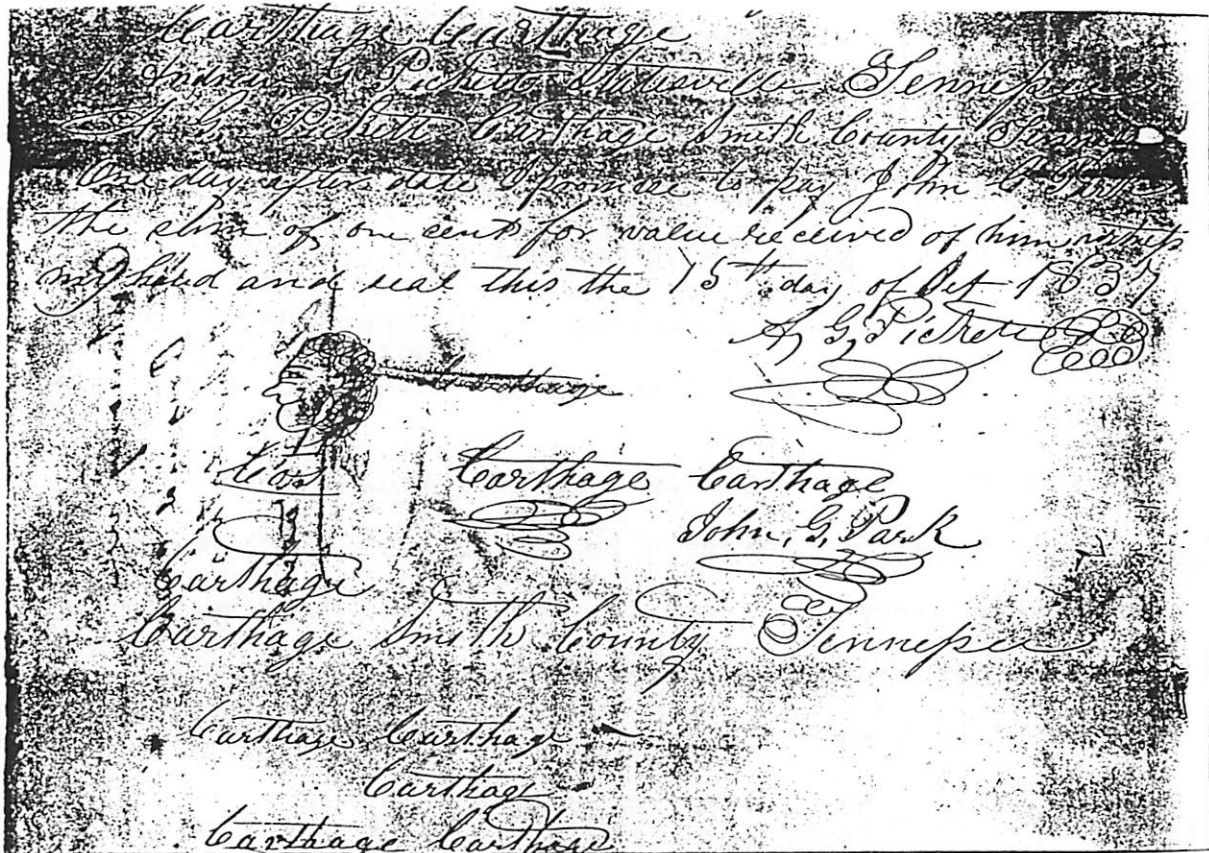 Carthage Carthage
G Pickett Statesville Tennessee
A G Pickett Carthage Smith County
One day after date I promise to pay John G Parker
the sum of one cent for value received of him witness
my hand and seal this the 15th day of Oct 1837
A, G, Pickett
Carthage
Car
Carthage Carthage
John, G, Park
Carthage
Carthage Smith County Tennessee
Carthage Carthage
Carthage
Carthage Carthage